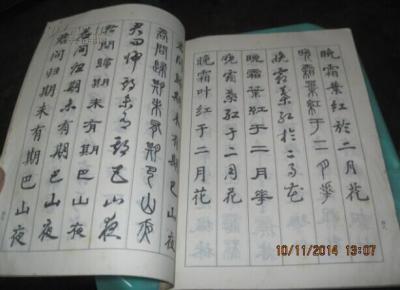 晚霜葉红於二月花
晚霜葉紅于二月華
晚霜葉红於二月花
晚霜葉紅于二月華
晚霜葉红于二月花
晚霜叶红于二月花
君問歸期未有期巴山夜
君问归期未有期巴山夜
君問歸期未有期巴山夜
君问归期未有期巴山夜
君问归期未有期巴山夜
10/11/2014 13:07